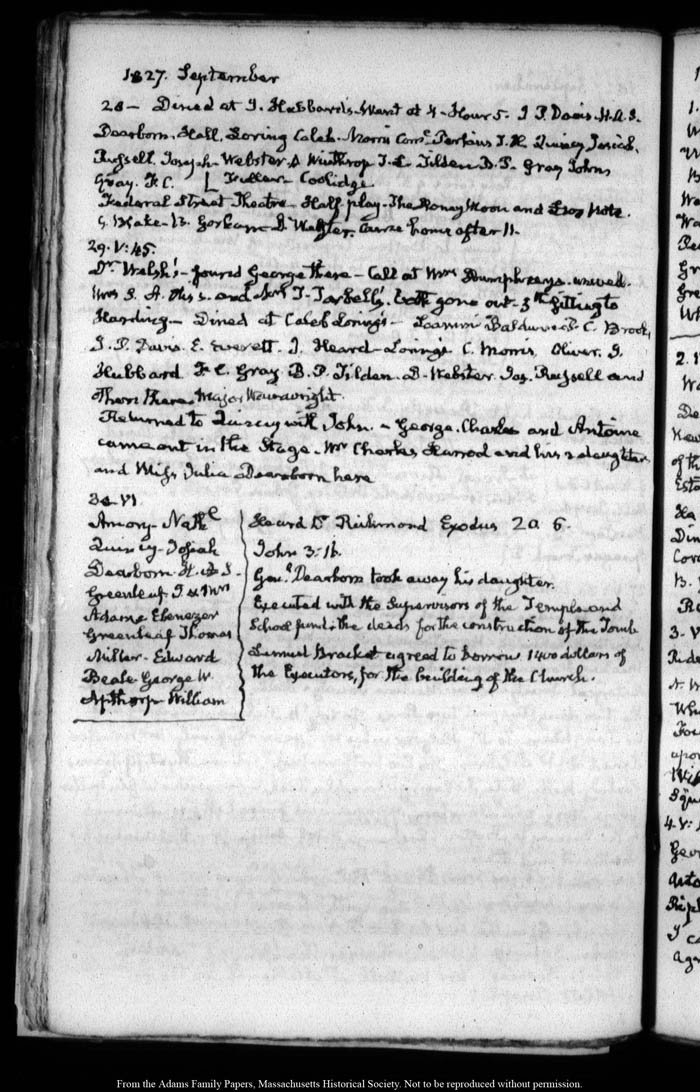 1827. September
28 – Dined at J. Hubbard's. Went at 4 – Hour 5. J P. Davis. H.A.S.
Dearborn. Hall. Loring Caleb. Morris Comr. Perkins T. H. Quincy Josiah.
Russell. Joseph – Webster. D Winthrop T. L. Tilden B. P. Gray John
Gray. F. C. Fuller – Coolidge
Federal Street Theatre – Half play – The Honey Moon and
G Blake – B. Gorham D. Webster. Came home after 11.
29. V:45.
Dr. Welsh's – found George there – Call at Mrs. Humphreys. unwell.
Mrs. S. A. Otis's. and J. Tarbell's. both gone out. 5th sitting to
Harding – Dined at Caleb Loring's – Loammi Baldwin P. C. Brooks,
J. P. Davis. E. Everett. J. Heard – Lorings C. Morris. Oliver. J.
Hubbard F. C. Gray B. P. Tilden. D. Webster. Jos. Russell and
others there Major Wainwright.
Returned to Quincy with John. – George. Charles and Antoine
came out in the Stage. Mr Charles and his 2 daughters
and Miss Julia Dearborn here
30. VI.
Amory – Nathl
Quincy – Josiah
Dearborn. H. A. S.
Greenleaf. J & Mrs
Adams Ebenezer
Greenleaf Thomas
Miller – Edward
Beale George W
Apthorp William
Heard Dr. Richmond Exodus 20 6.
John 3: 16.
Genl. Dearborn took away his daughter.
Executed with the Supervisors of the Temple and
School fund, the deeds for the construction of the Tomb
Lemuel Bracket agreed to borrow 1400 dollars of
the Executors, for the building of the Church.
From the Adams Family Papers, Massachusetts Historical Society. Not to be reproduced without permission.